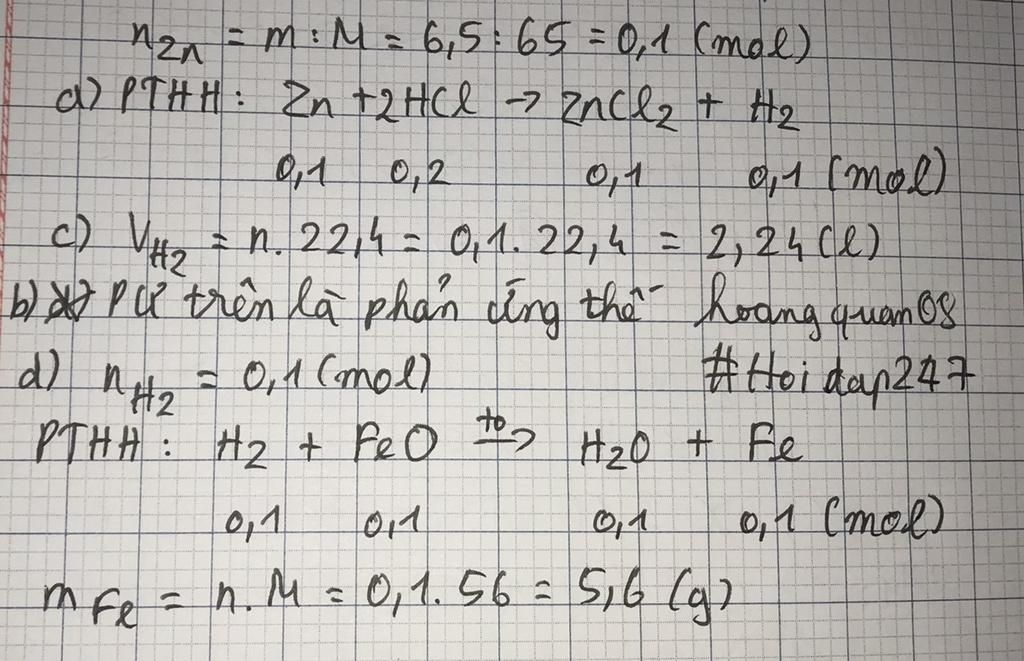 nZn = m : M = 6,5 : 65 = 0,1 (mol)
a) PTHH : Zn + 2HCl → ZnCl2 + H2
0,1 0,2 0,1 0,1 (mol)
c) VH2 = n . 22,4 = 0,1 . 22,4 = 2,24 (l)
b) PƯ trên là phản ứng thế hoangquan08
d) nH2 = 0,1 (mol) #Hoidap247
PTHH : H2 + FeO to→ H2O + Fe
0,1 0,1 0,1 0,1 (mol)
mFe = n . M = 0,1 . 56 = 5,6 (g)